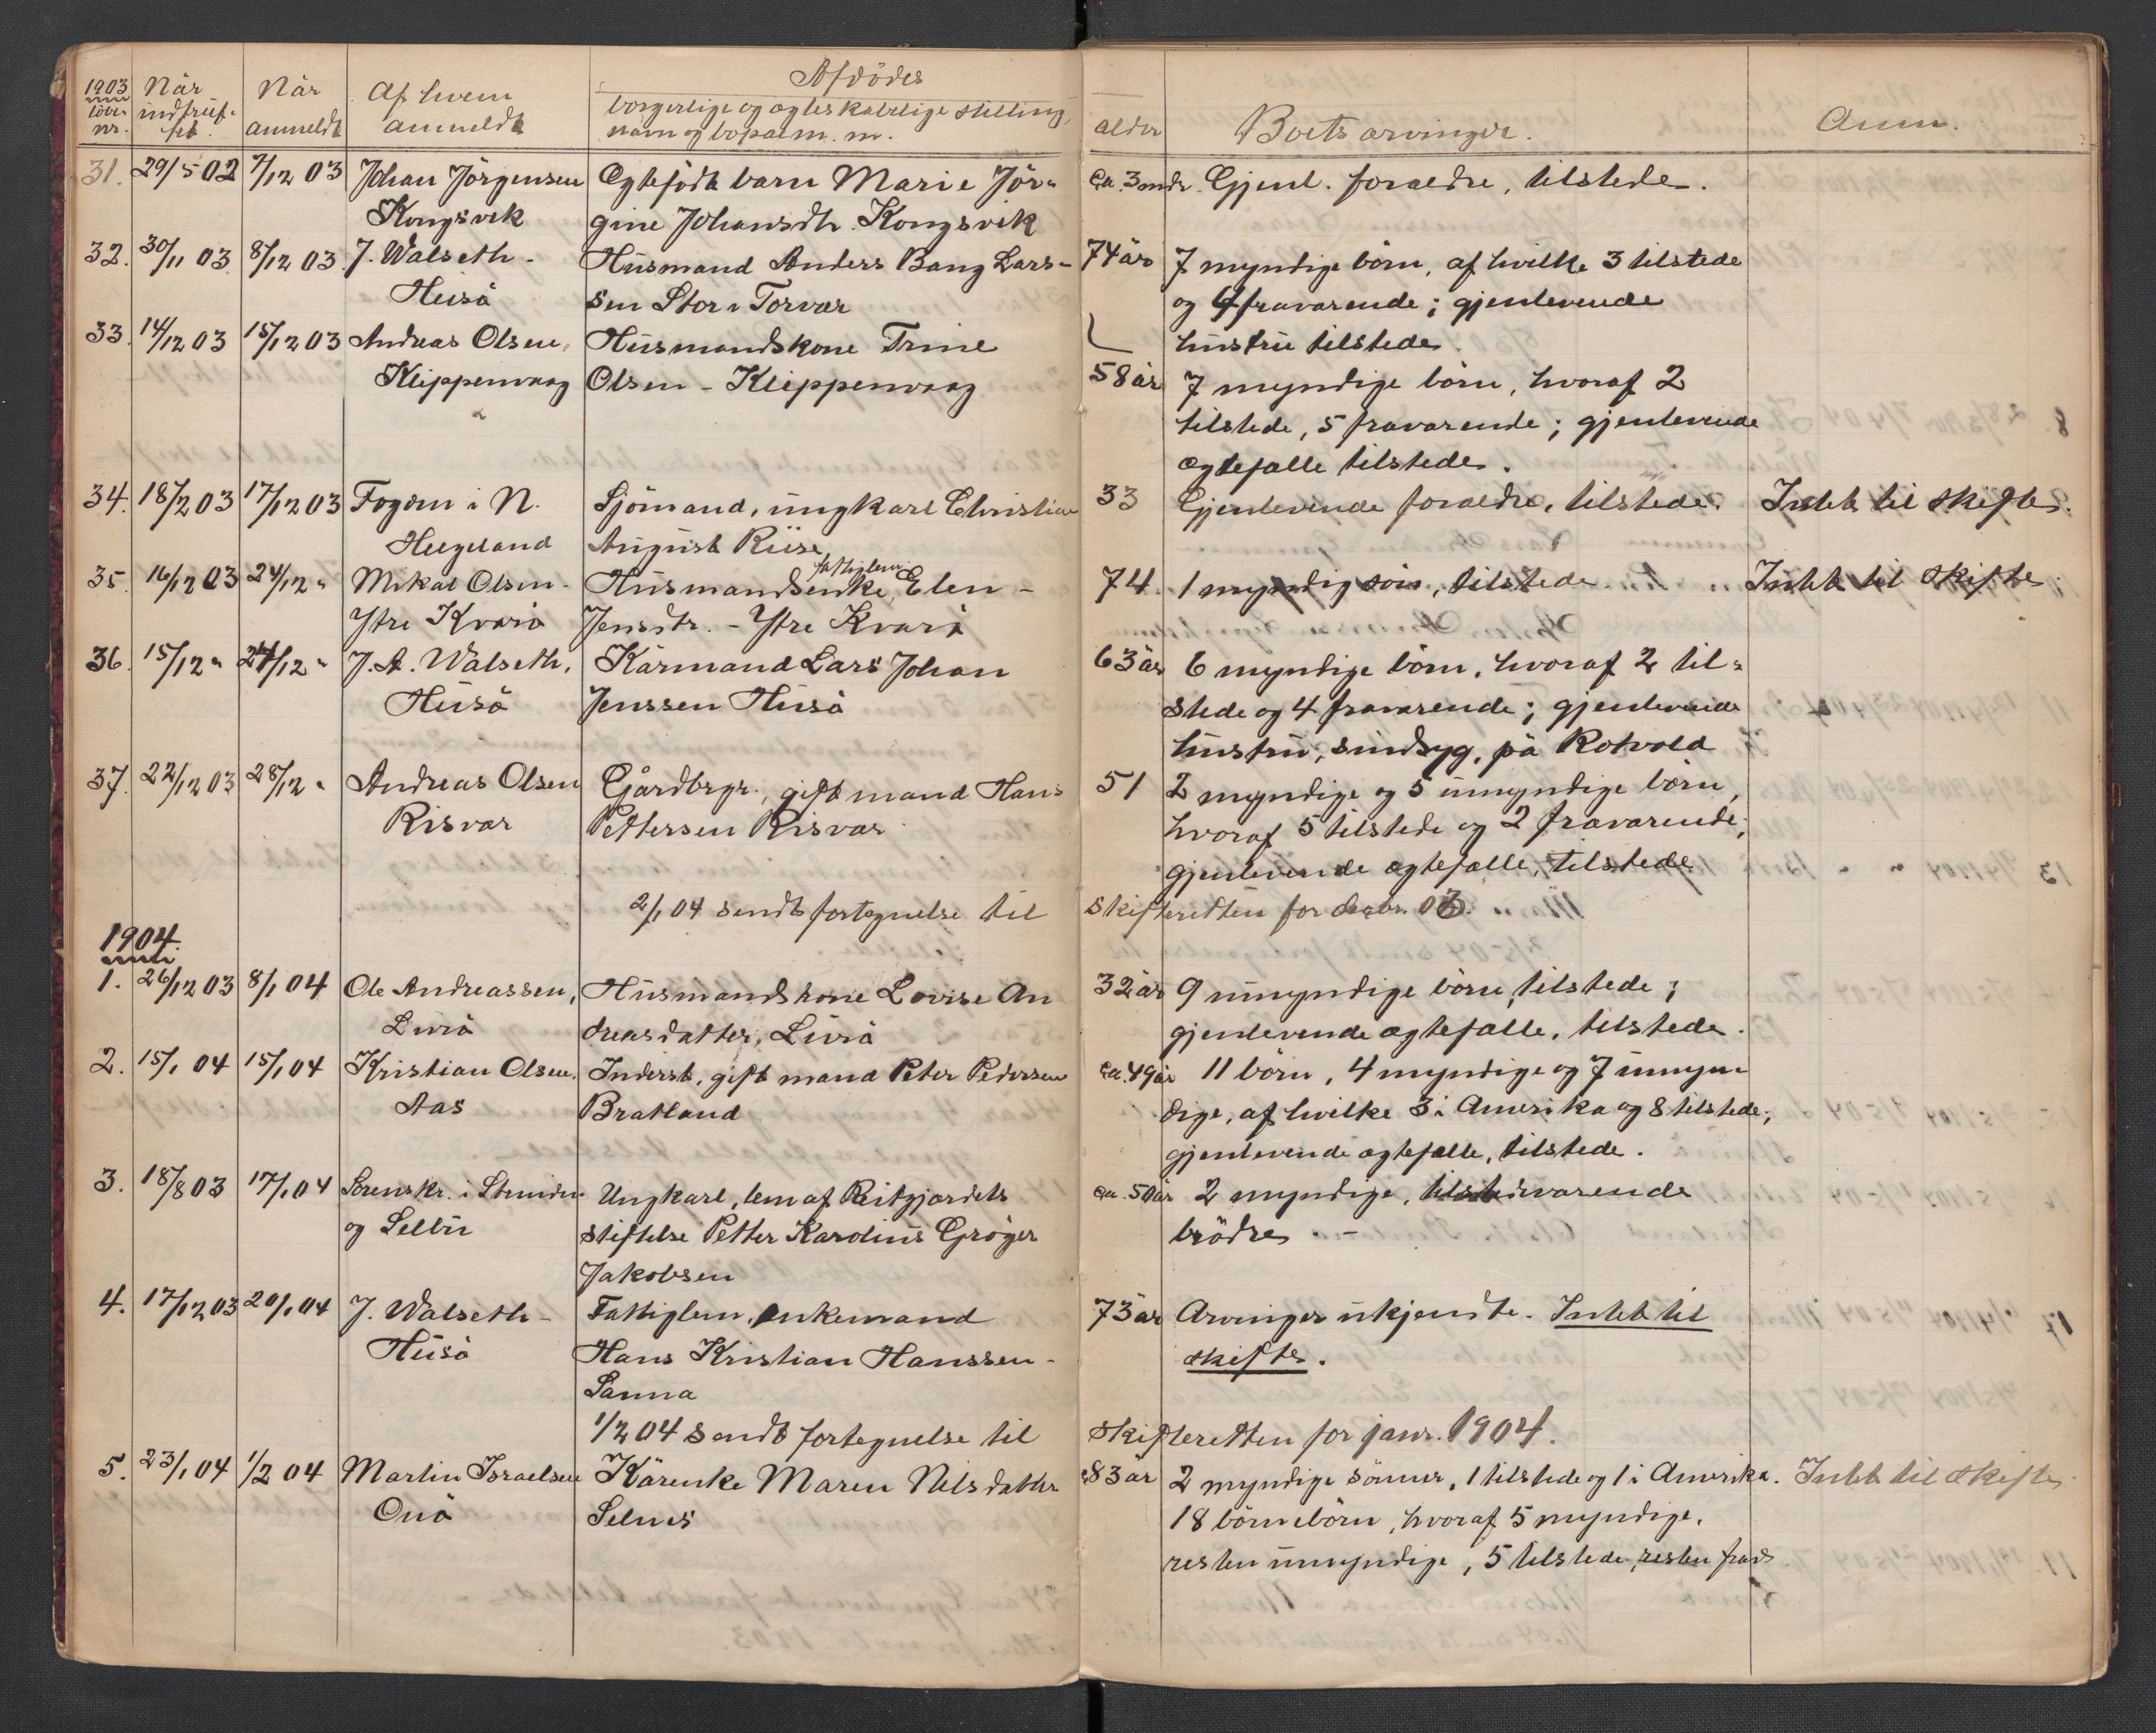 1903
löbe-
nr.
Når
indtruf-
fet
Når
anmeldt
Af hvem
anmeldt
Afdödes
borgerlige og ægteskabelige stilling,
navn og bopæl m. m.
alder
Boets arvinger.
Anm.
31. 29/5 02 7/12 03 Johan Jörgensen Ægtefödt barn Marie Jör- ca. 3 mdr. Gjenl. forældre, tilstede.
Kongsvik gine Johansdtr. Kongsvik
32. 30/11 03 8/12 03 J. Walseth - Husmand Anders Bang Lars- 74 år 7 myndige börn, af hvilke 3 tilstede
Husö sen Store Torvær og 4 fraværende; gjenlevende
hustru tilstede.
33. 14/12 03 15/12 03 Andreas Olsen, Husmandskone Trine
Klippenvaag Olsen - Klippenvaag 58 år 7 myndige börn, hvoraf 2
tilstede, 5 fraværende; gjenlevende
ægtefælle tilstede.
34. 18/2 03 17/12 03 Fogden i N. Sjömand, ungkarl Christian 33 Gjenlevende forældre, tilstede. Intet til skifte.
Helgeland August Riise
35. 16/12 03 24/12 " Mikal Olsen - Husmandsenke, fattiglem Elen - 74. 1 myndig sön, tilstede. Intet til skifte.
Ytre Kvarö Jensdtr. - Ytre Kvarö
36. 15/12 " 24/12 " J. A. Walseth, Kårmand Lars Johan 63 år 6 myndige börn, hvoraf 2 til-
Husö Jenssen Husö stede og 4 fraværende; gjenlevende
hustru, sindsyg, på Rotvold
37. 22/12 03 28/12 " Andreas Olsen Gårdbrgr., gift mand Hans 51 2 myndige og 5 umyndige börn,
Risvær Pettersen Risvær hvoraf 5 tilstede og 2 fraværende;
gjenlevende ægtefælle, tilstede
2/1 04 sendt fortegnelse til skifteretten for decbr. 03.
1904.
1. 26/12 03 8/1 04 Ole Andreassen, Husmandskone Lovise An 32 år 9 umyndige börn, tilstede;
Lurö dreasdatter, Lurö gjenlevende ægtefælle, tilstede.
2. 15/1 04 15/1 04 Kristian Olsen, Inderst, gift mand Peter Pedersen ca. 49 år 11 börn, 4 myndige og 7 umyn-
Aas Bratland dige, af hvilke 3 i Amerika og 8 tilstede;
gjenlevende ægtefælle, tilstede.
3. 18/8 03 17/1 04 Sorenskr. i Strinden Ungkarl, lem af Reitgjærdets ca. 50 år 2 myndige, tilstedeværende
og Selbu stiftelse Petter Karolius Gröger brödre -
Jakobsen
4. 17/12 03 20/1 04 J. Walseth - Fattiglem, enkemand 73 år Arvinger ukjendte. Intet til
Husö Hans Kristian Hanssen - skifte.
Sanna
1/2 04 sendt fortegnelse til skifteretten for janr. 1904.
5. 23/1 04 1/2 04 Martin Israelsen Kårenke Maren Nilsdatter 83 år 2 myndige sönner, 1 tilstede og 1 i Amerika. Intet til skifte.
Onö Selnes 18 börnebörn, hvoraf 5 myndige,
resten umyndige, 5 tilstede, resten frav.